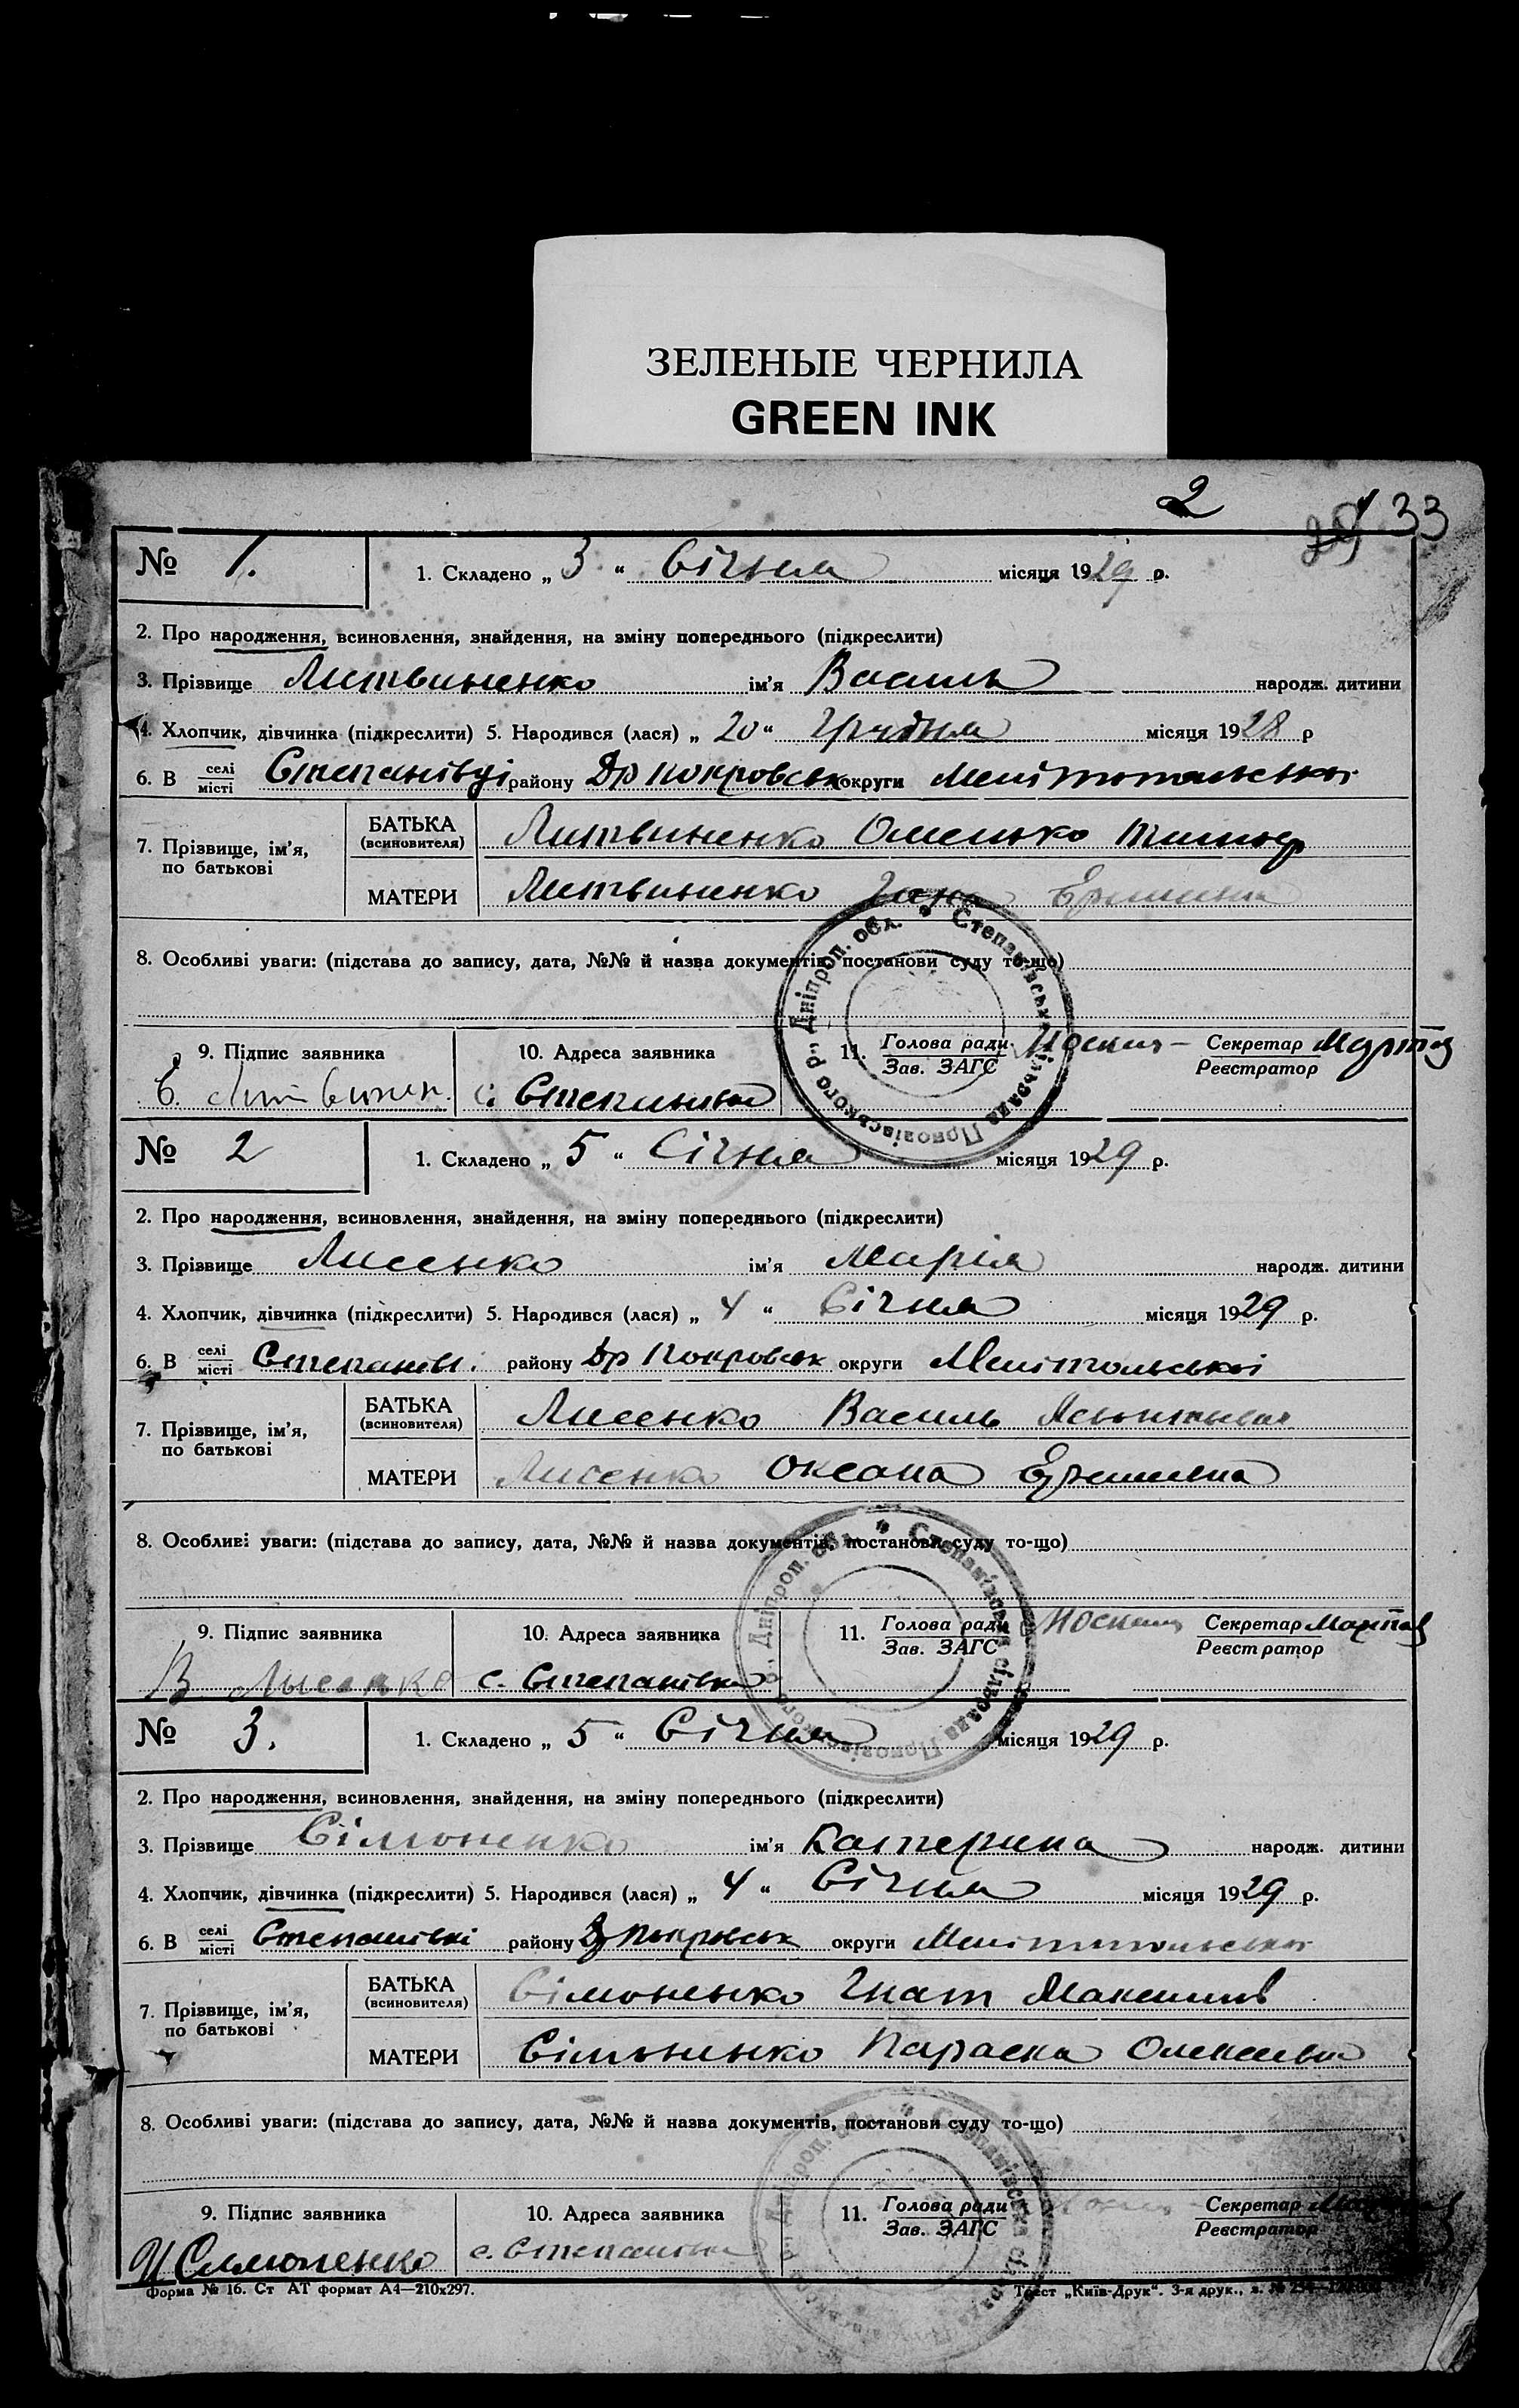 ЗЕЛЕНЫЕ ЧЕРНИЛА
GREEN INK
2
33
№ 1. 1. Складено „ 3 “ Січня місяця 1929 р.
2. Про народження, всиновлення, знайдення, на зміну попереднього (підкреслити)
3. Прізвище Литвиненко ім’я Василь народж. дитини
4. Хлопчик, дівчинка (підкреслити) 5. Народився (лася) „ 20 “ Грудня місяця 1928 р
6. В селі місті Степанівці району Др Покровськ округи
7. Прізвище, ім’я, по батькові
БАТЬКА (всиновителя) Литвиненко
МАТЕРИ Литвиненко
8. Особливі уваги: (підстава до запису, дата, №№ й назва документів, постанови суду то-що)
9. Підпис заявника 10. Адреса заявника 11. Голова ради Зав. ЗАГС Секретар Реєстратор
с. Степанівка
Степанівська сільрада Приозівського р., Дніпроп. обл.
№ 2 1. Складено „ 5 “ Січня місяця 1929 р.
2. Про народження, всиновлення, знайдення, на зміну попереднього (підкреслити)
3. Прізвище Лисенко ім’я Марія народж. дитини
4. Хлопчик, дівчинка (підкреслити) 5. Народився (лася) „ 4 “ Січня місяця 1929 р.
6. В селі місті Степанів. району Др Покровськ округи
7. Прізвище, ім’я, по батькові
БАТЬКА (всиновителя) Лисенко Василь
МАТЕРИ Лисенко Оксана
8. Особливі уваги: (підстава до запису, дата, №№ й назва документів, постанови суду то-що)
9. Підпис заявника 10. Адреса заявника 11. Голова ради Зав. ЗАГС Секретар Реєстратор
В Лысенко с. Степанівка
№ 3. 1. Складено „ 5 “ Січня місяця 1929 р.
2. Про народження, всиновлення, знайдення, на зміну попереднього (підкреслити)
3. Прізвище Сімоненко ім’я Катерина народж. дитини
4. Хлопчик, дівчинка (підкреслити) 5. Народився (лася) „ 4 “ Січня місяця 1929 р.
6. В селі місті Степанівкі району Др Покровськ округи
7. Прізвище, ім’я, по батькові
БАТЬКА (всиновителя) Сімоненко Гнат Максимів
МАТЕРИ Сімоненко Параска Олексіївна
8. Особливі уваги: (підстава до запису, дата, №№ й назва документів, постанови суду то-що)
9. Підпис заявника 10. Адреса заявника 11. Голова ради Зав. ЗАГС Секретар Реєстратор
И Симоненко с. Степановка
Форма № 16. Ст АТ формат А4—210х297. Трест „Київ-Друк“. 3-я друк.,